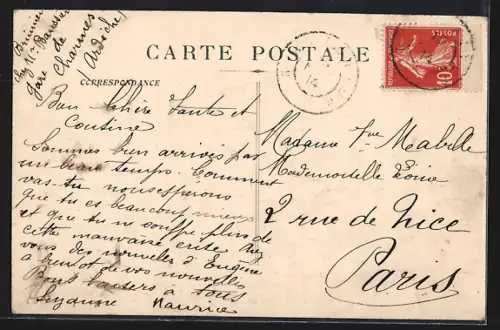 chez Mr
Gare de
Charmes
(Ardèche)
CARTE POSTALE
CORRESPONDANCE
14
POSTES
10
Bon Chère Tante et
Cousine
Sommes bien arrivés par
un beau temps. Comment
vas-tu nous espérons
que tu es beaucoup mieux
et que tu ne souffre plus de
cette mauvaise
vous des nouvelles d'Eugène
à bientôt de vos nouvelles
Bons baisers à tous
Suzanne Maurice
Madame Vve Mabille
Mademoiselle
2 rue de Nice
Paris